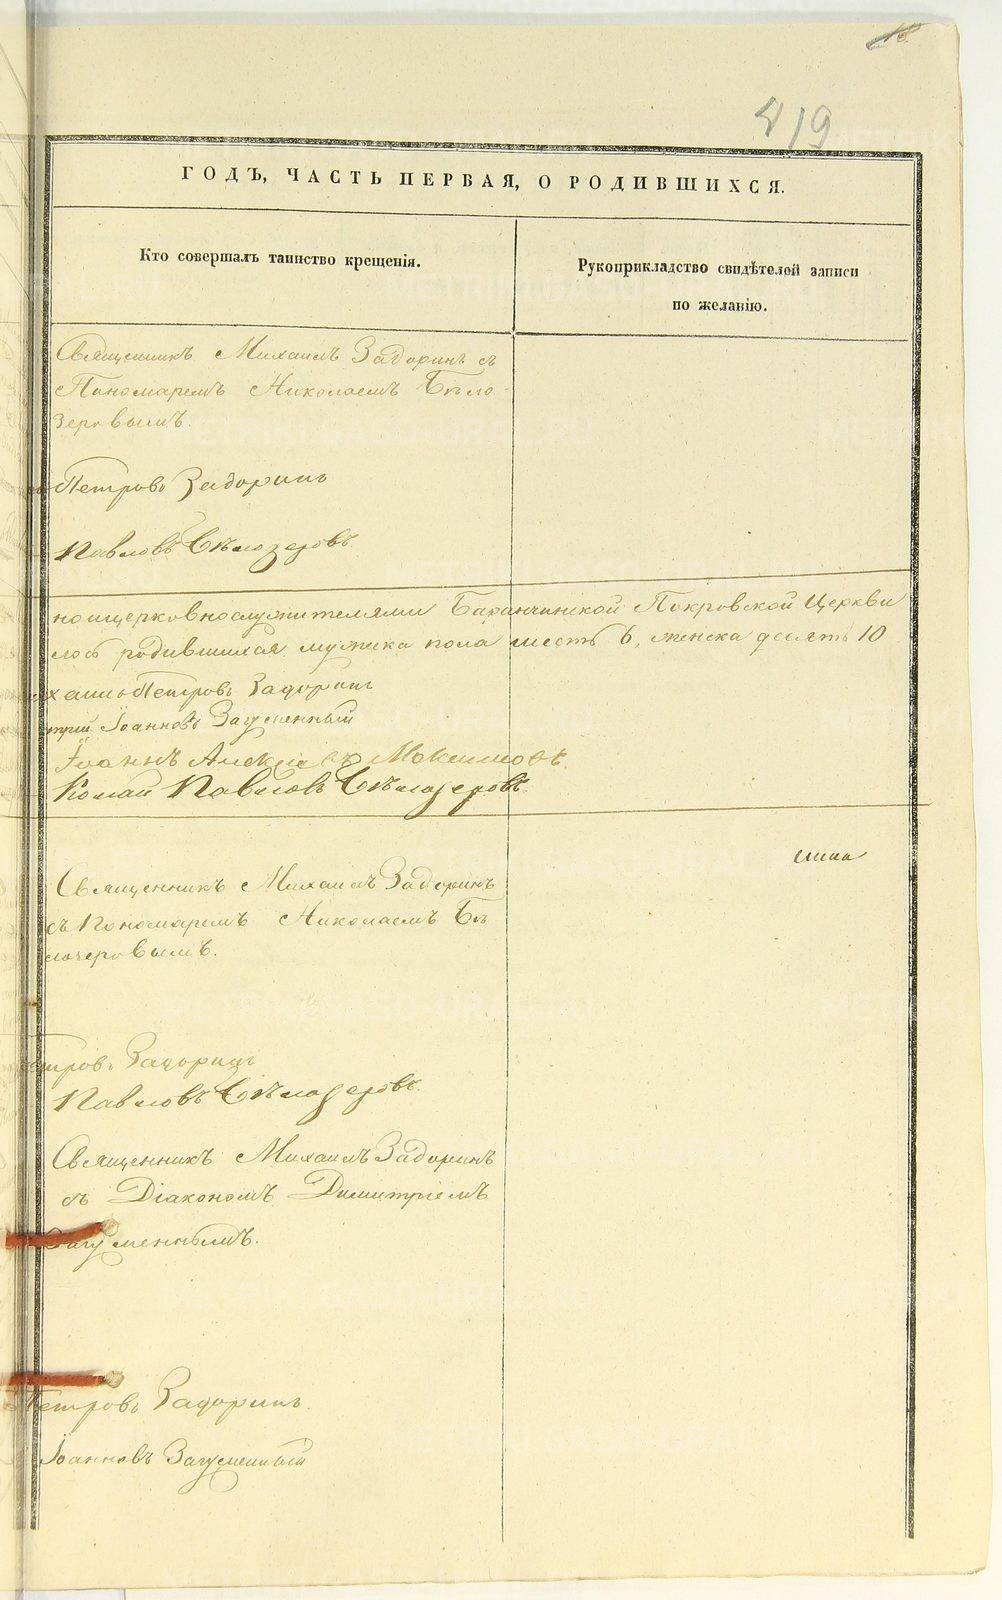 419
ГОДЪ, ЧАСТЬ ПЕРВАЯ, О РОДИВШИХСЯ.
Кто совершалъ таинство крещенія.
Рукоприкладство свидѣтелей записи
по желанію.
Священникъ Михаилъ Задоринъ съ
Пономаремъ Николаемъ Бѣло-
зеровымъ.
Петровъ Задоринъ
Павловъ Бѣлозеровъ.
ноцерковнослужителями Баранчинской Покровской Церкви
лось родившихся мужска пола шесть 6, женска десять 10
хаилъ Петровъ Задоринъ
трий Іоанновъ Загуменный
Іоаннъ Алексѣевъ Максимовъ.
колай Павловъ Бѣлозеровъ.
Священникъ Михаилъ Задоринъ
съ Пономаремъ Николаемъ Бѣ
лозеровымъ.
етровъ Задоринъ
Павловъ Бѣлозеровъ.
Священникъ Михаилъ Задоринъ
съ Діакономъ Димитріемъ
Загуменнымъ.
Петровъ Задоринъ.
Іоанновъ Загуменный
METRIKI.GASO-URAL.RU